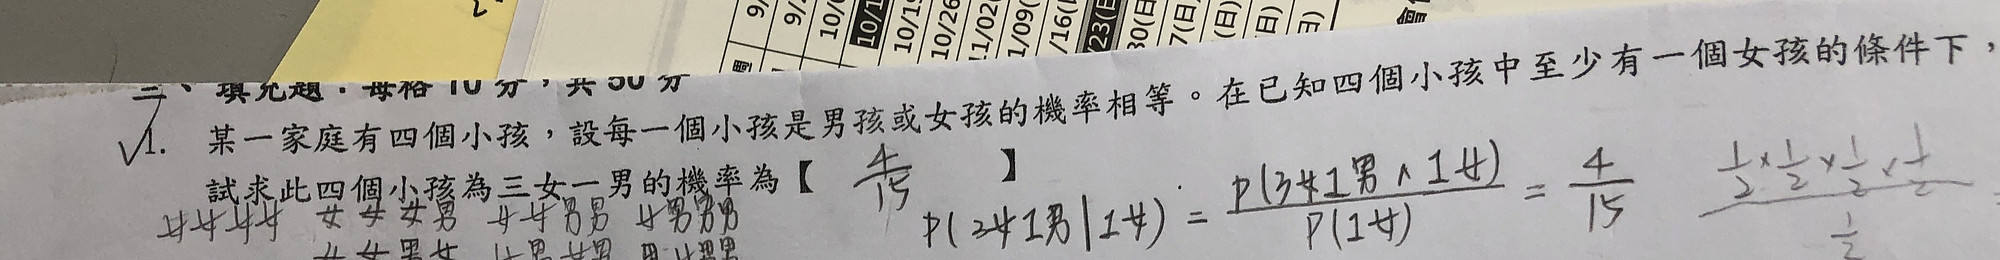 9/
10/1
10/19
10/26
11/02(
1/09(
/16(
23(日
30(日
7(日)
(日)
日)
三、填充題：每格 10 分，共 50 分
1. 某一家庭有四個小孩，設每一個小孩是男孩或女孩的機率相等。在已知四個小孩中至少有一個女孩的條件下，
試求此四個小孩為三女一男的機率為【 4/15 】
P(3女1男|1女) = P(3女1男∧1女)/P(1女) = 4/15
1/2 × 1/2 × 1/2 × 1/2
1/2
女女女女 女女女男 女女男男 女男男男
女女男女 女男女男 男女男男